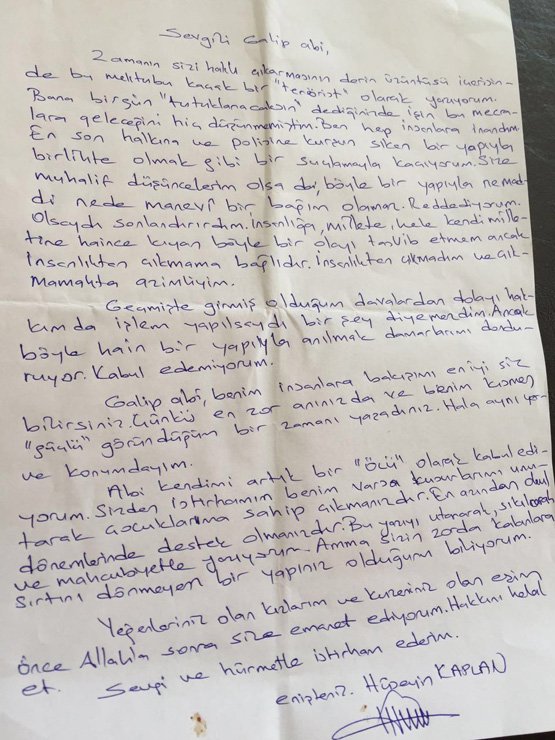 Sevgili Galip abi,
Zamanın sizi haklı çıkarmasının derin üzüntüsü içerisin-
de bu mektubu kaçak bir "terörist" olarak yazıyorum.
Bana birgün "tutuklanacaksın" dediğinizde işin bu mecra-
lara geleceğini hiç düşünmemiştim. Ben hep insanlara inandım.
En son halkına ve polisine kurşun sıken bir yapıyla
birlikte olmak gibi bir suçlamayla kaçıyorum. Size
muhalif düşüncelerim olsa da, böyle bir yapıyla ne mad-
di nede manevi bir bağım olamaz. Reddediyorum.
Olsaydı sonlandırırdım. İnsanlığa, millete, hele kendi mille-
tine haince kıyan böyle bir olayı tasvib etmem ancak
İnsanlıkten çıkmama bağlıdır. İnsanlıkten çıkmadım ve çık-
mamakta azimliyim.
Geçmişte girmiş olduğum davalardan dolayı hak-
kımda işlem yapılsaydı bir şey diyemezdim. Ancak
böyle hain bir yapıyla anılmak damarlarımı dondu-
ruyor. Kabul edemiyorum.
Galip abi, benim insanlara bakışımı en iyi siz
bilirsiniz. Çünkü en zor anınızda ve benim kısmen
"güçlü" göründüğüm bir zamanı yaşadınız. Hala aynı yer-
ve konumdayım.
Abi kendimi artık bir "ölü" olarak kabul edi-
yorum. Sizden istirhamım benim varsa kusurlarımı unu-
tarak çocuklarıma sahip çıkmanızdır. En azından okul
dönemlerinde destek olmanızdır. Bu yazıyı utanarak, sıkılarak
ve mahcubiyetle yazıyorum. Amma sizin zorda kalanlara
sırtını dönmeyen bir yapınız olduğunu biliyorum.
Yeğenleriniz olan kızlarım ve kuzeniniz olan eşim
önce Allah'a sonra size emanet ediyorum. Hakkını helal
et. Sevgi ve hürmetle istirham ederim.
enişteniz. Hüseyin KAPLAN